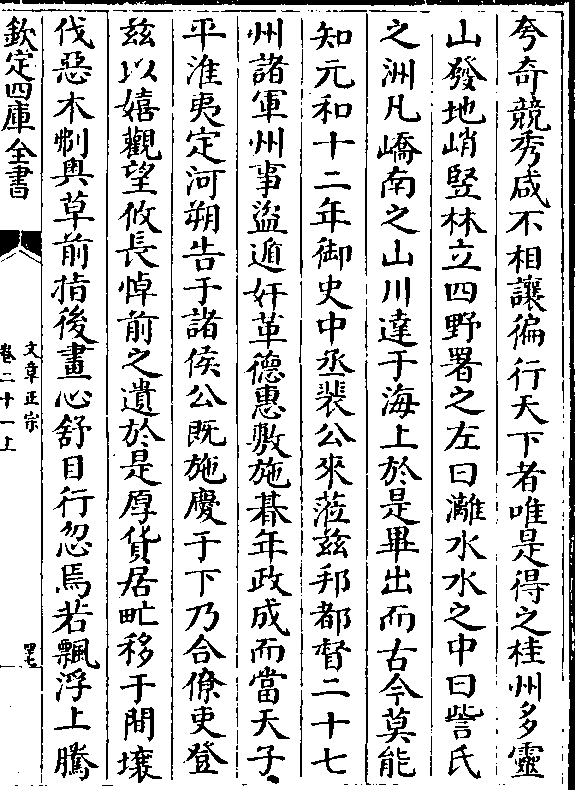 夸奇競秀咸不相讓徧行天下者唯是得之桂州多靈
山發地峭竪林立四野署之左曰灕水水之中曰訾氏
之洲凡嶠南之山川達于海上於是畢出而古今莫能
知元和十二年御史中丞裴公來蒞兹邦都督二十七
州諸軍州事盜遁奸革德惠敷施朞年政成而當天子
平淮夷定河朔告于諸侯公既施慶于下乃合僚吏登
兹以嬉觀望攸長悼前之遺於是厚貨居甿移于閒壤
伐惡木刜奥草前指後畫心舒目行忽焉若飄浮上騰
欽定四庫全書
文章正宗
卷二十一上